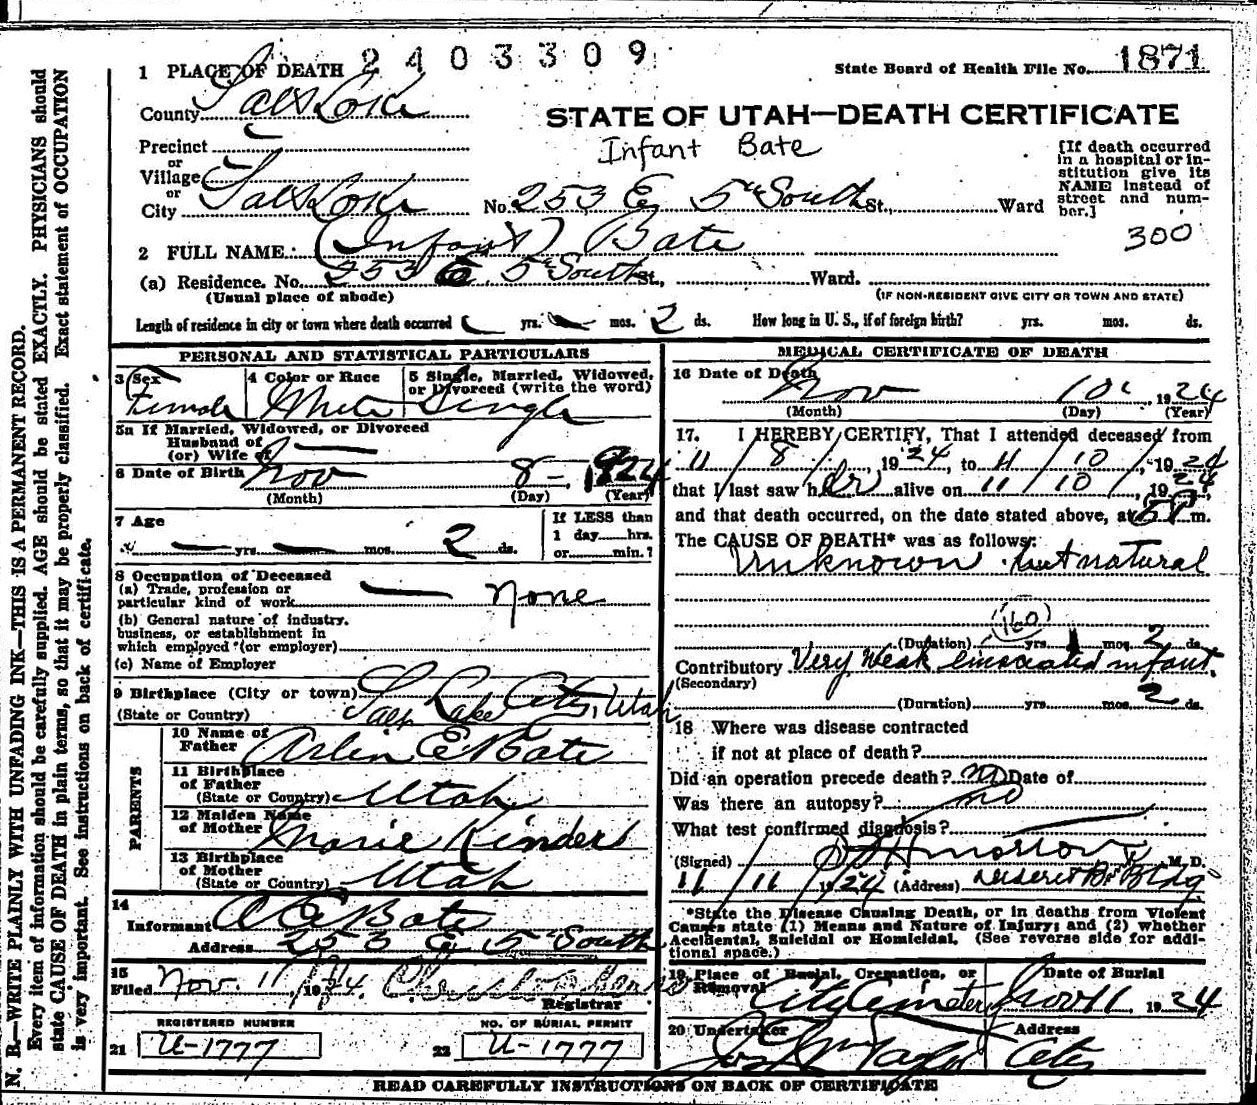 2403309
1871
State Board of Health File No.
1 PLACE OF DEATH
County Salt Lake
STATE OF UTAH—DEATH CERTIFICATE
Infant Bate
Precinct
or
Village
or
City Salt Lake
No. 253 E 5th South St., Ward
[If death occurred
in a hospital or in-
stitution give its
NAME instead of
street and num-
ber.]
300
2 FULL NAME (Infant) Bate
(a) Residence. No. 253 E. 5th South St., Ward.
(Usual place of abode)
(IF NON-RESIDENT GIVE CITY OR TOWN AND STATE)
Length of residence in city or town where death occurred — yrs. — mos. 2 ds. How long in U. S., if of foreign birth? yrs. mos. ds.
PERSONAL AND STATISTICAL PARTICULARS
3 Sex
Female
4 Color or Race
White
5 Single, Married, Widowed,
or Divorced (write the word)
Single
5a If Married, Widowed, or Divorced
Husband of
(or) Wife of —
6 Date of Birth Nov 8 - 1924
(Month) (Day) (Year)
7 Age
— yrs. — mos. 2 ds.
If LESS than
1 day hrs.
or min.?
8 Occupation of Deceased
(a) Trade, profession or
particular kind of work — None
(b) General nature of industry,
business, or establishment in
which employed (or employer)
(c) Name of Employer
9 Birthplace (City or town) Salt Lake City, Utah
(State or Country)
PARENTS
10 Name of
Father Arlin E Bate
11 Birthplace
of Father
(State or Country) Utah
12 Maiden Name
of Mother Marie Kinder
13 Birthplace
of Mother
(State or Country) Utah
14
Informant A E Bate
Address 253 E 5th South
15
Filed Nov. 11, 1924.
Registrar
REGISTERED NUMBER
21 U-1777
NO. OF BURIAL PERMIT
22 U-1777
MEDICAL CERTIFICATE OF DEATH
16 Date of Death
Nov 10, 1924
(Month) (Day) (Year)
17. I HEREBY CERTIFY, That I attended deceased from
11/8/, 1924, to 11/10/, 1924
that I last saw her alive on 11/10, 1924,
and that death occurred, on the date stated above, at 5 P m.
The CAUSE OF DEATH* was as follows:
Unknown but natural
160
(Duration) yrs. mos. 2 ds.
Contributory Very Weak emaciated infant.
(Secondary)
(Duration) yrs. mos. 2 ds.
18 Where was disease contracted
if not at place of death?
Did an operation precede death? no Date of
Was there an autopsy? no
What test confirmed diagnosis?
(Signed) M. D.
11/11/1924 (Address) Deseret Bk Bldg
*State the Disease Causing Death, or in deaths from Violent
Causes state (1) Means and Nature of Injury; and (2) whether
Accidental, Suicidal or Homicidal. (See reverse side for addi-
tional space.)
19 Place of Burial, Cremation, or
Removal City Cemetery
Date of Burial
Nov 11 1924
20 Undertaker
Jos Wm Taylor
Address
City
READ CAREFULLY INSTRUCTIONS ON BACK OF CERTIFICATE
N. B.—WRITE PLAINLY WITH UNFADING INK—THIS IS A PERMANENT RECORD.
Every item of information should be carefully supplied. AGE should be stated EXACTLY. PHYSICIANS should
state CAUSE OF DEATH in plain terms, so that it may be properly classified. Exact statement of OCCUPATION
is very important. See instructions on back of certificate.